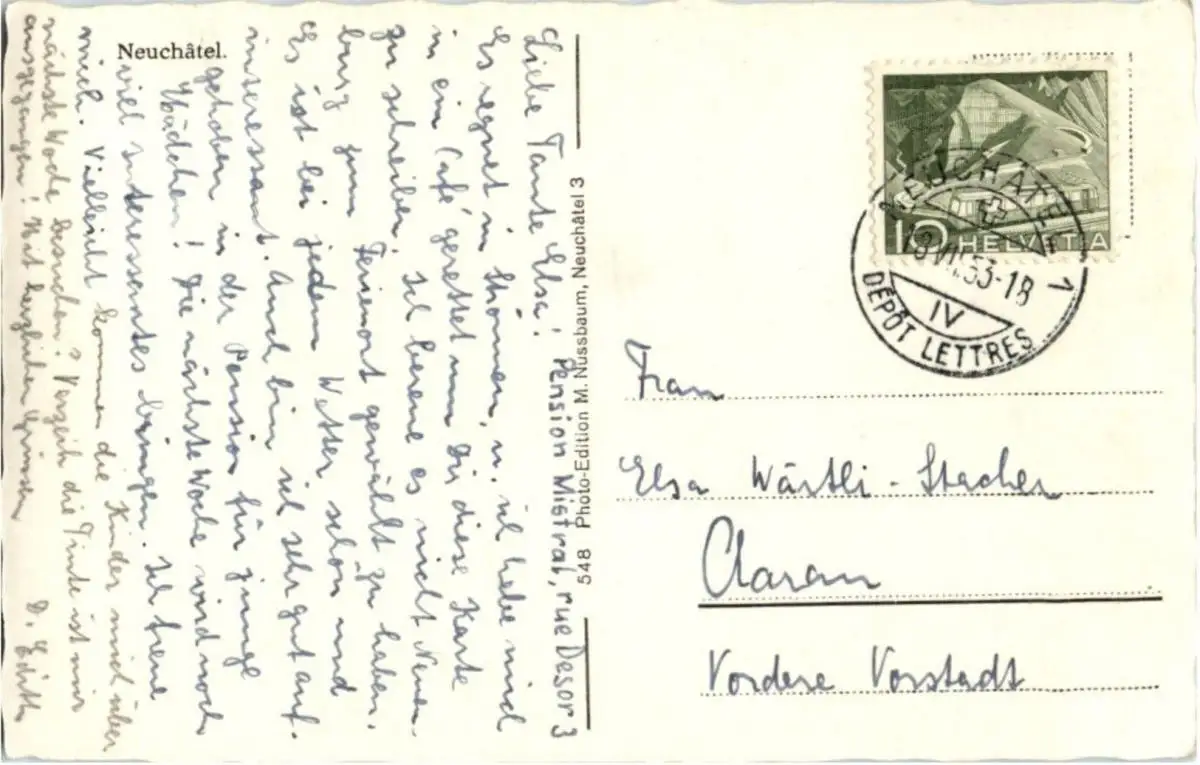 Neuchâtel.
Liebe Tante Elsa!
Pension Mistral, rue Desor 3
Es regnet in Strömen, u. ich habe mich
in ein Café gerettet um Dir diese Karte
zu schreiben. Ich bereue es nicht Neuen-
burg zum Ferienort gewählt zu haben.
Es ist bei jedem Wetter schön und
interessant. Auch bin ich sehr gut auf-
gehoben in der Pension für junge
Mädchen! Die nächste Woche wird noch
viel Interessantes bringen. Ich freue
mich. Vielleicht kommen die Kinder mich über
nächste Woche besuchen? Verzeih die Tinte ist mir
ausgegangen! Mit herzlichen Grüssen
D. Edith
548 Photo-Edition M. Nussbaum, Neuchâtel 3
10 HELVETIA
NEUCHÂTEL 1
53-18
IV
DÉPÔT LETTRES
Frau
Elsa Wärtli-Stacher
Aarau
Vordere Vorstadt